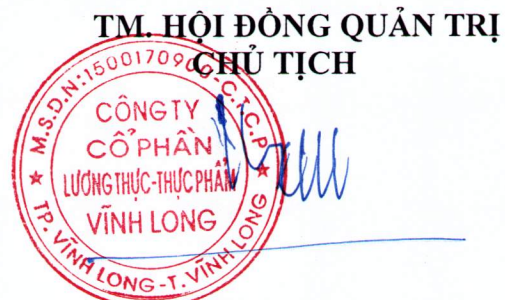 TM. HỘI ĐỒNG QUẢN TRỊ
CHỦ TỊCH
M.S.D.N:1500170900-C.T.C.P
CÔNG TY
CỔ PHẦN
LƯƠNG THỰC-THỰC PHẨM
VĨNH LONG
TP. VĨNH LONG - T. VĨNH LONG